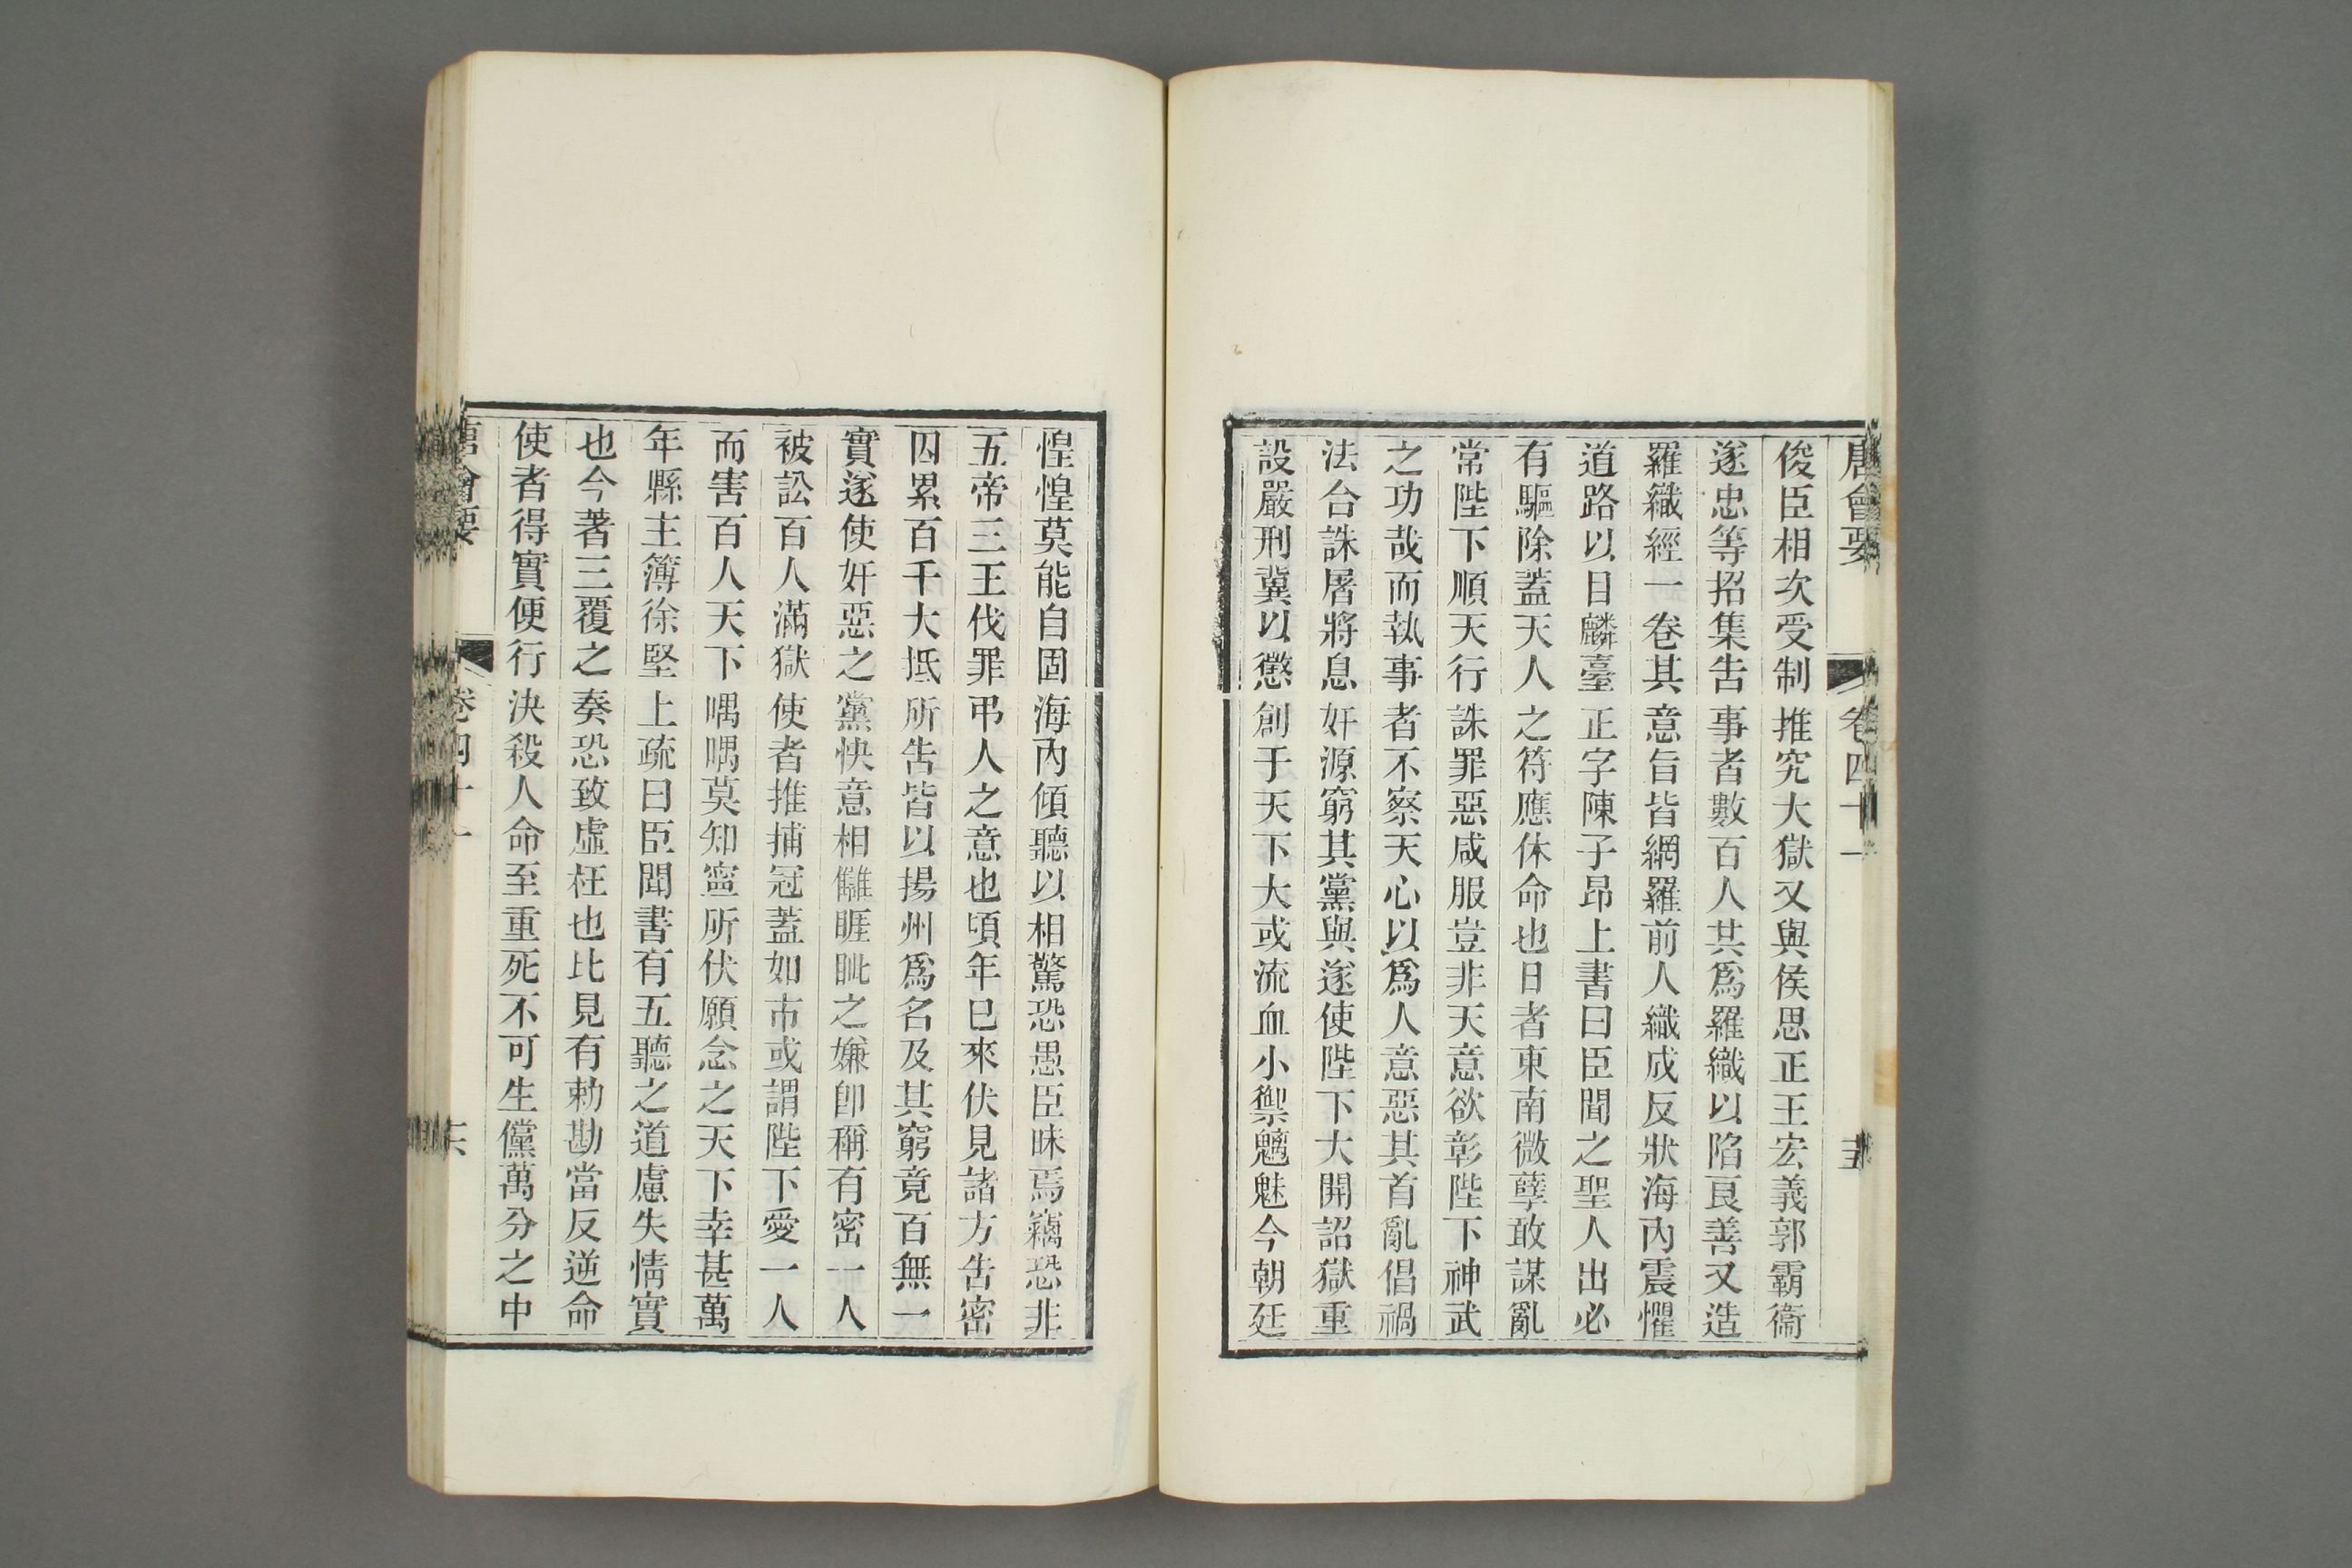 唐會要 卷四十一
俊臣相次受制推究大獄又與侯思正王宏義郭霸衞
遂忠等招集告事者數百人共爲羅織以陷良善又造
羅織經一卷其意旨皆網羅前人織成反狀海內震懼
道路以目麟臺正字陳子昂上書曰臣聞之聖人出必
有驅除蓋天人之符應休命也日者東南微孽敢謀亂
常陛下順天行誅罪惡咸服豈非天意欲彰陛下神武
之功哉而執事者不察天心以爲人意惡其首亂倡禍
法合誅屠將息奸源窮其黨與遂使陛下大開詔獄重
設嚴刑冀以懲創于天下大或流血小禦魑魅今朝廷
惶惶莫能自固海內傾聽以相驚恐愚臣昧焉竊恐非
五帝三王伐罪弔人之意也頃年已來伏見諸方告密
囚累百千大抵所告皆以揚州爲名及其窮竟百無一
實遂使奸惡之黨快意相讎睚眦之嫌卽稱有密一人
被訟百人滿獄使者推捕冠蓋如市或謂陛下愛一人
而害百人天下喁喁莫知寍所伏願念之天下幸甚萬
年縣主簿徐堅上疏曰臣聞書有五聽之道慮失情實
也今著三覆之奏恐致虛枉也比見有勅勘當反逆命
使者得實便行決殺人命至重死不可生儻萬分之中
唐會要 卷四十一